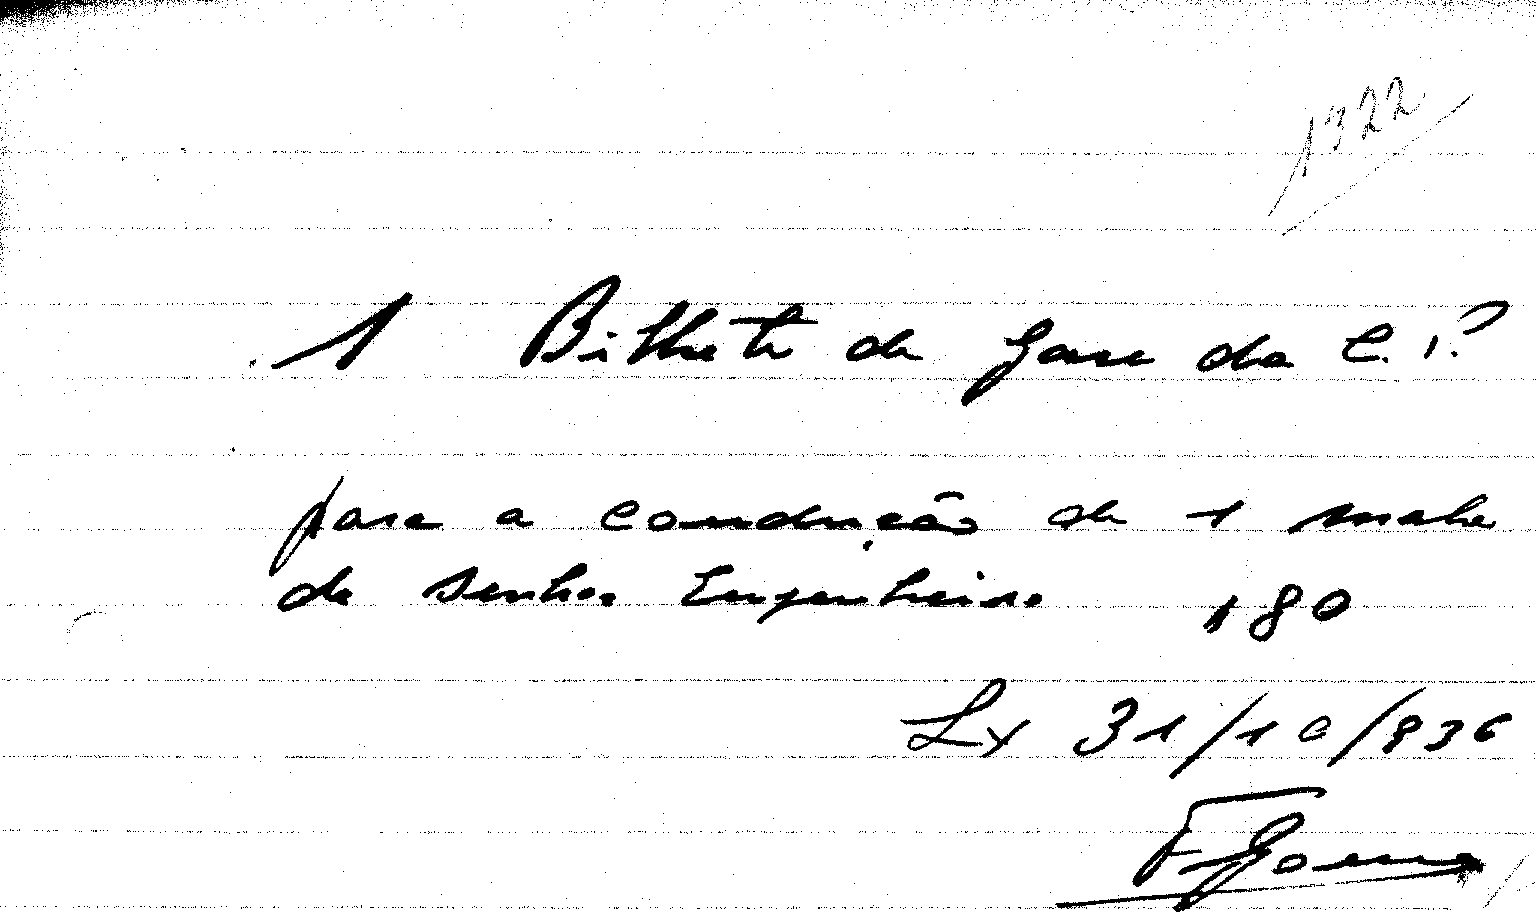 1322
1 Bilhete de gare da C. P.
para a condução de 1 mala
do Senhor Engenheiro 180
Lx 31/10/936
F Gomes